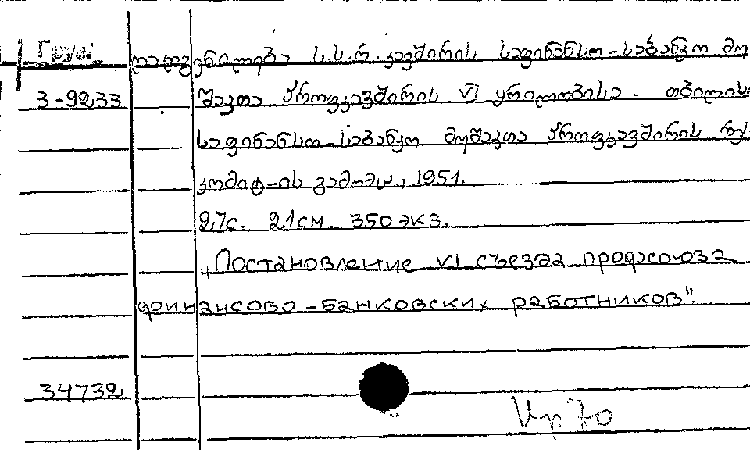 Груз. დადგენილება ს.ს.რ. კავშირის საფინანსო-საბანკო მო
3-9233 შაკთა პროფკავშირის VI ყრილობისა. თბილისი
საფინანსო-საბანკო მუშაკთა პროფკავშირის რეს
კომიტ-ის გამომც., 1951.
27с. 21см. 350 экз.
„Постановление VI съезда профсоюза
финансово-банковских работников"
34732